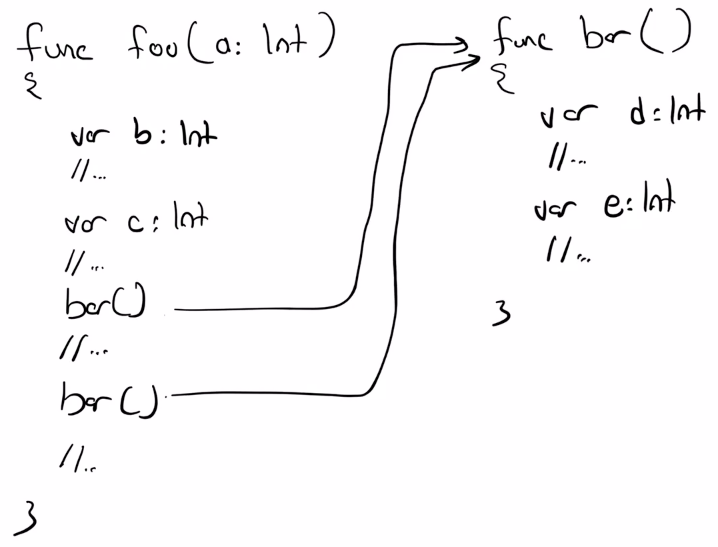 func foo(a: Int)
{
var b: Int
//...
var c: Int
//...
bar()
//...
bar()
//..
}
func bar()
{
var d: Int
//...
var e: Int
//...
}